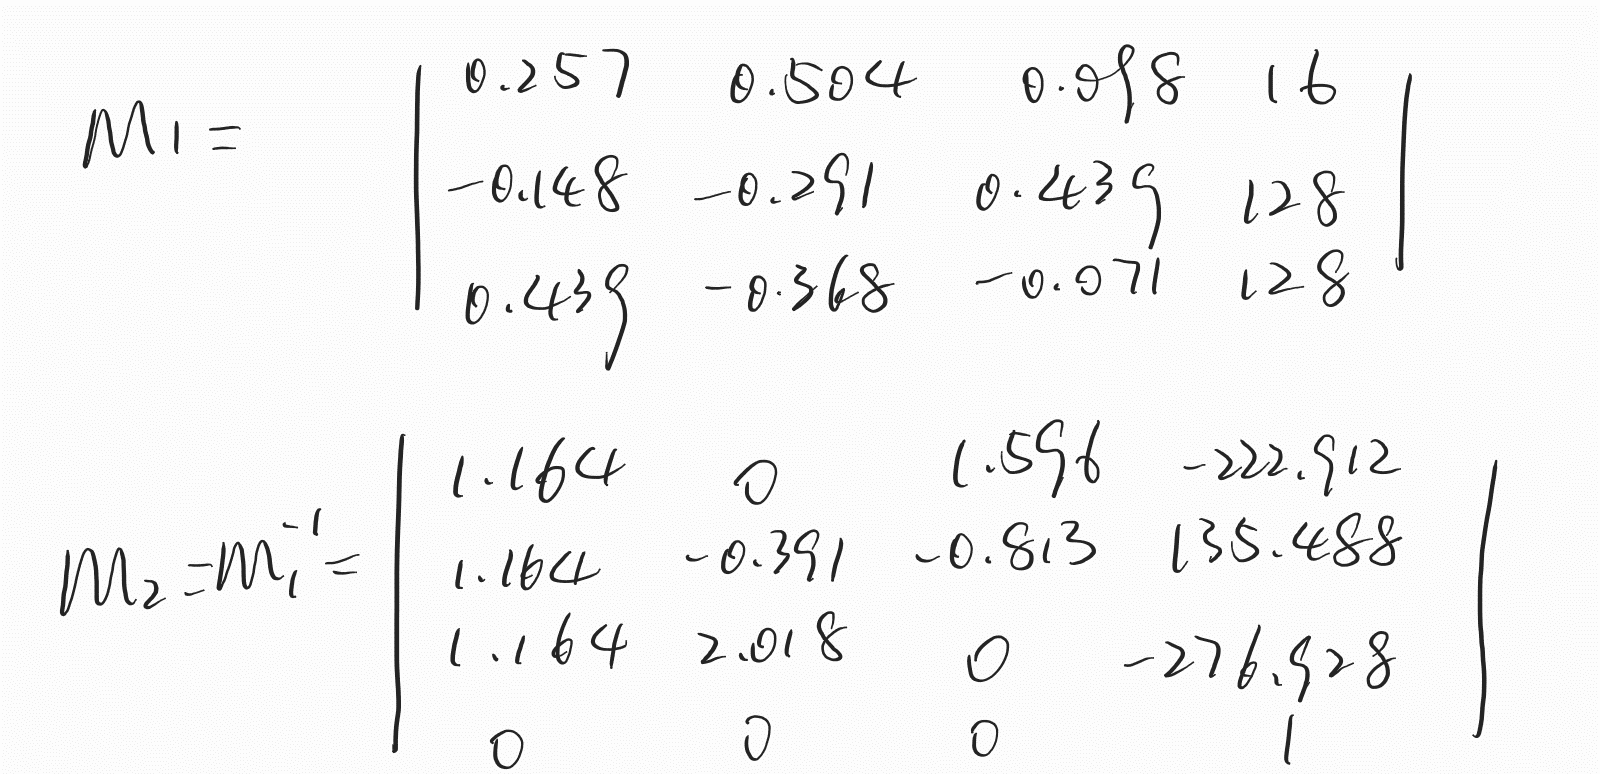 M1 = | 0.257 0.504 0.098 16 |
-0.148 -0.291 0.439 128
0.439 -0.368 -0.071 128
| 1.164 0 1.596 -222.912 |
M₂ = M₁⁻¹ = 1.164 -0.391 -0.813 135.488
1.164 2.018 0 -276.928
0 0 0 1